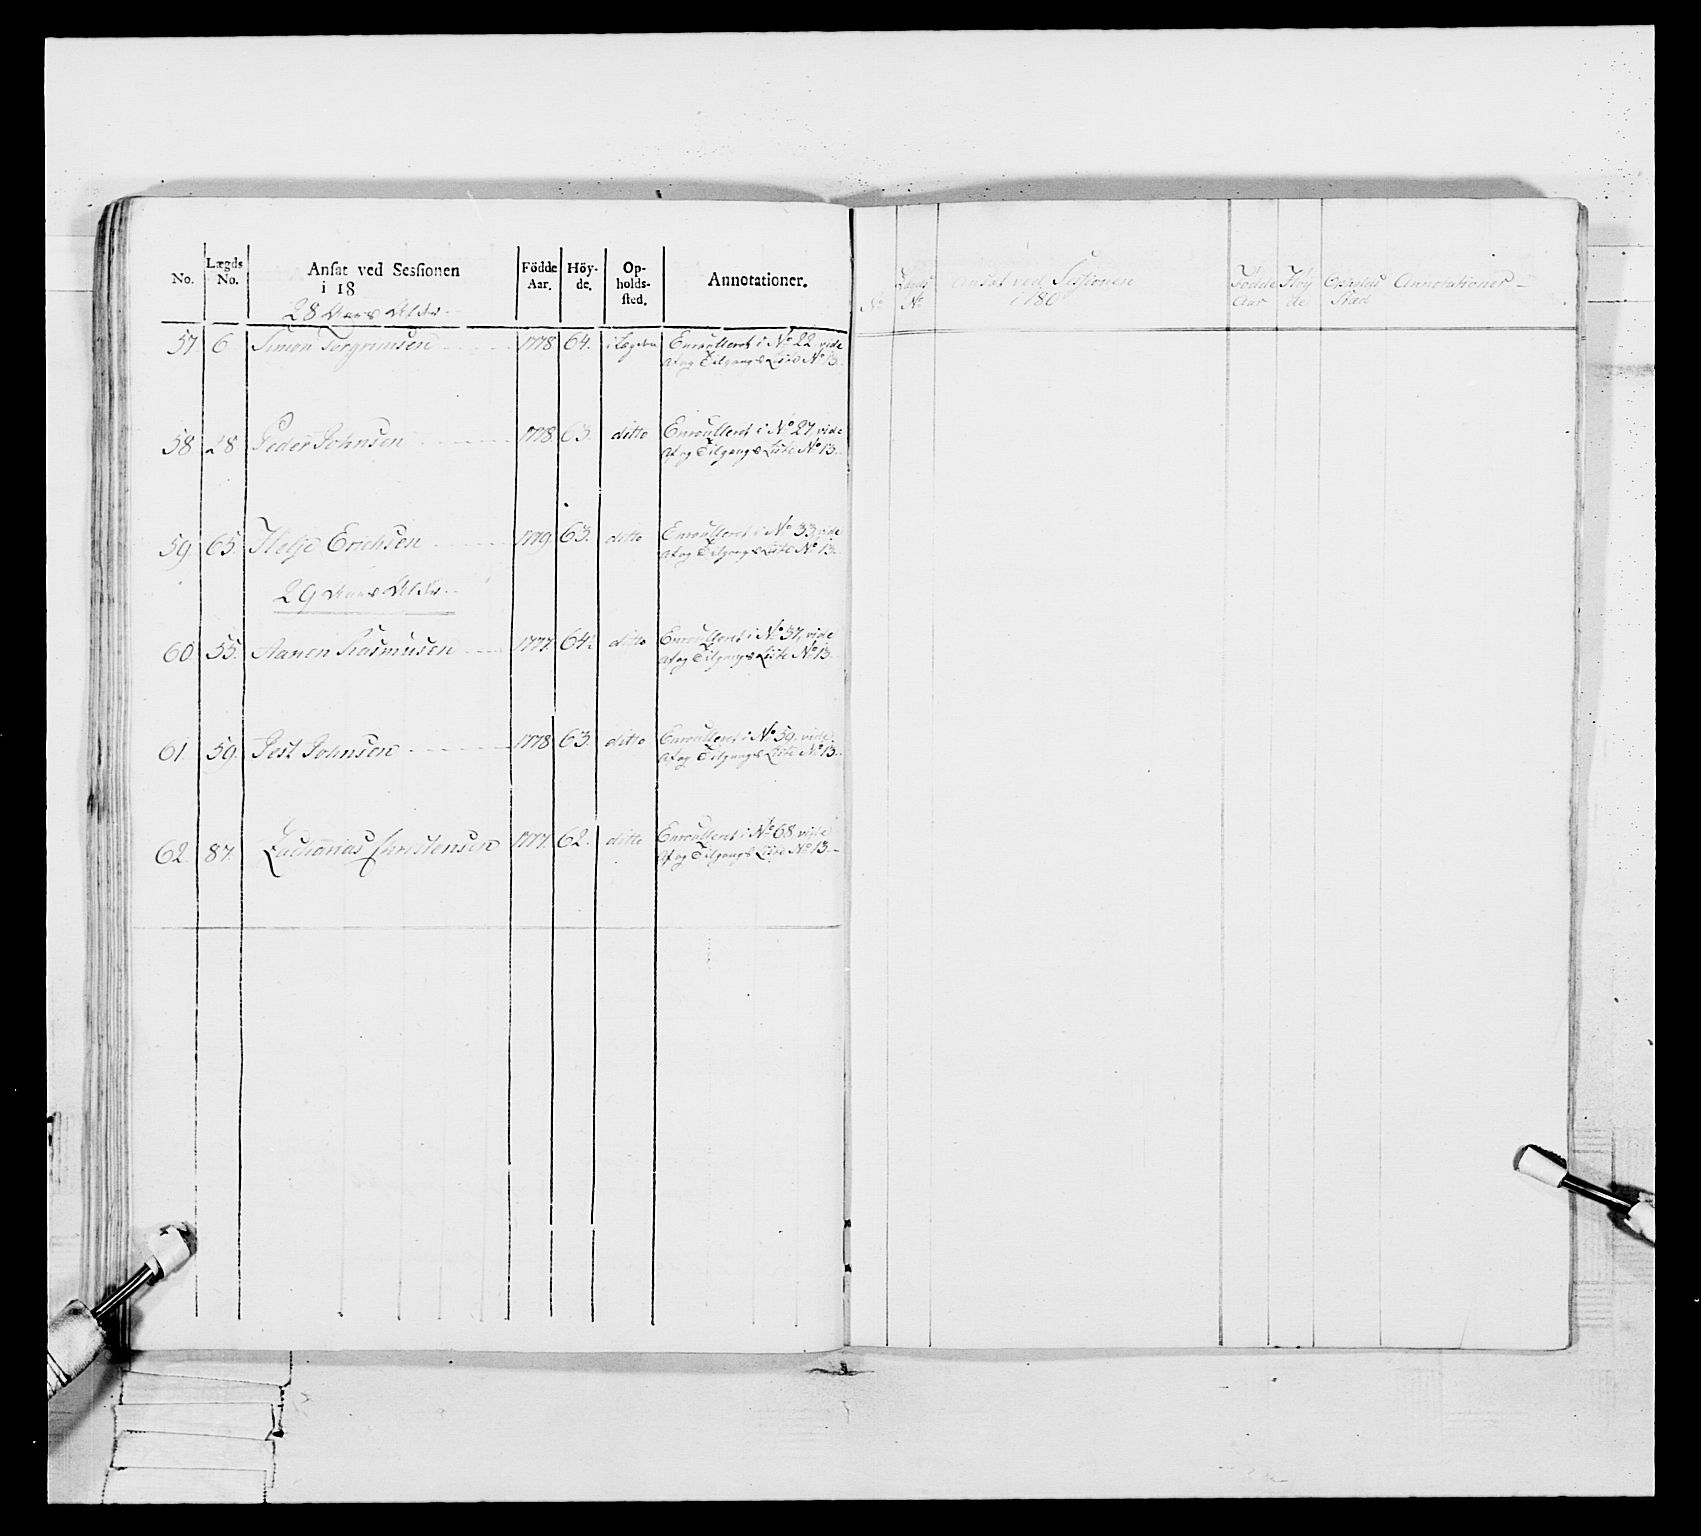 No. Lægds No. Ansat ved Sessionen i 18 Födde Aar. Höy- de. Op- holds- sted. Annotationer.
28 Aars Alder
57 6 Simon Torgrimsen 1778 64. i Lægden Enroulleret i No 22 vide
Af og Tilgangs Liste No 13.
58 28 Peder Johnsen 1778. 63. ditto Enroulleret i No 27 vide
Af og Tilgangs Liste No 13.
59. 65. Helje Erichsen 1779. 63. ditto Enroulleret i No 33, vide
Af og Tilgangs Liste No 13.
29 Aars Alder
60. 55. Aanen Rasmusen 1777. 64. ditto Enroulleret i No 37, vide
Af og Tilgangs Liste No 13.
61. 59. Jest Johnsen 1778 63. ditto Enroulleret i No 59. vide
Af og Tilgangs Liste No 13.
62. 87. Zacharias Christensen 1777. 62. ditto Enroulleret i No 68 vide
Af og Tilgangs Liste No 13.
No Lægds No Ansat ved Sessionen i 180 Fødde Aar Høy de Opholds Sted Annotationer